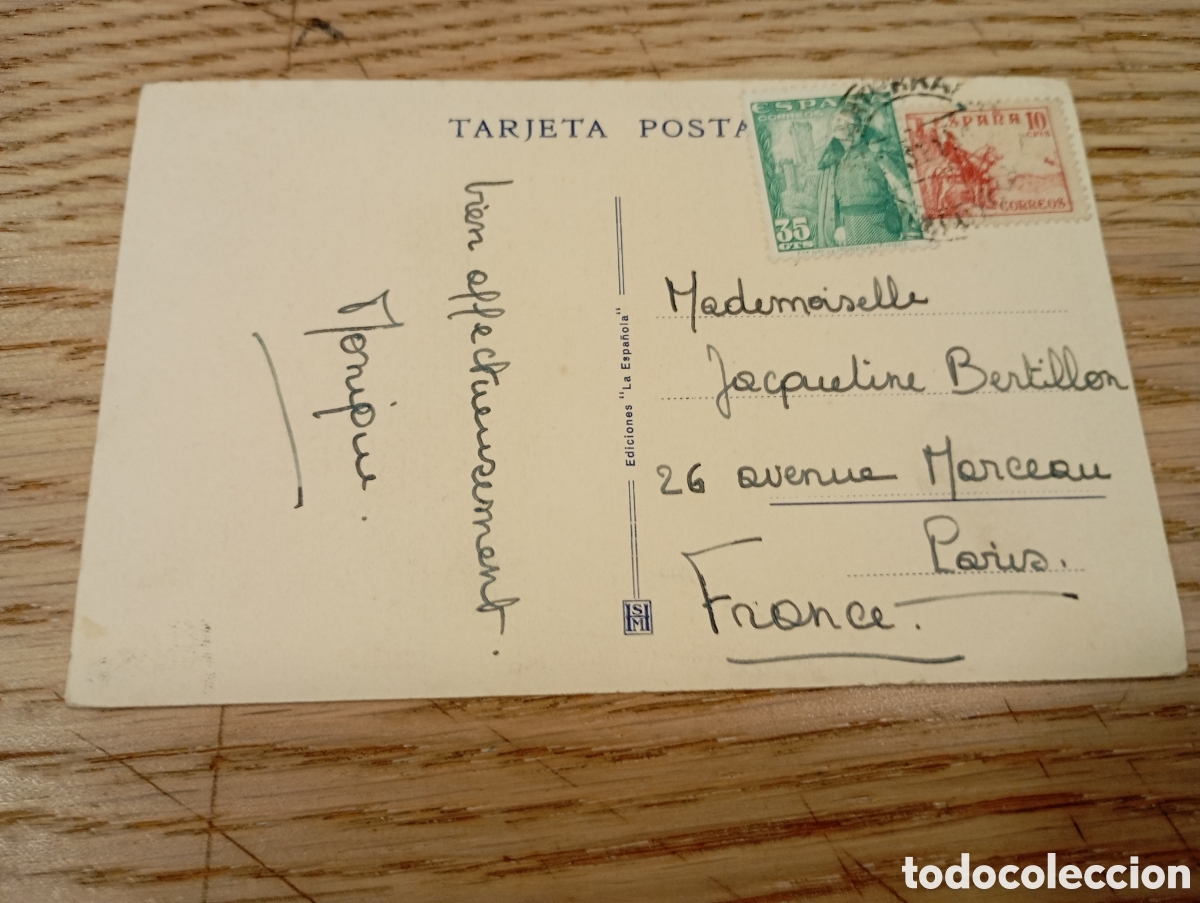 TARJETA POSTA
ESPAÑA
CORREOS
35
CTS
ESPAÑA 10
CTS
CORREOS
bien affectueusement.
Monique.
Ediciones "La Española"
HSM
Mademoiselle
Jacqueline Bertillon
26 avenue Marceau
Paris.
France.
todocoleccion